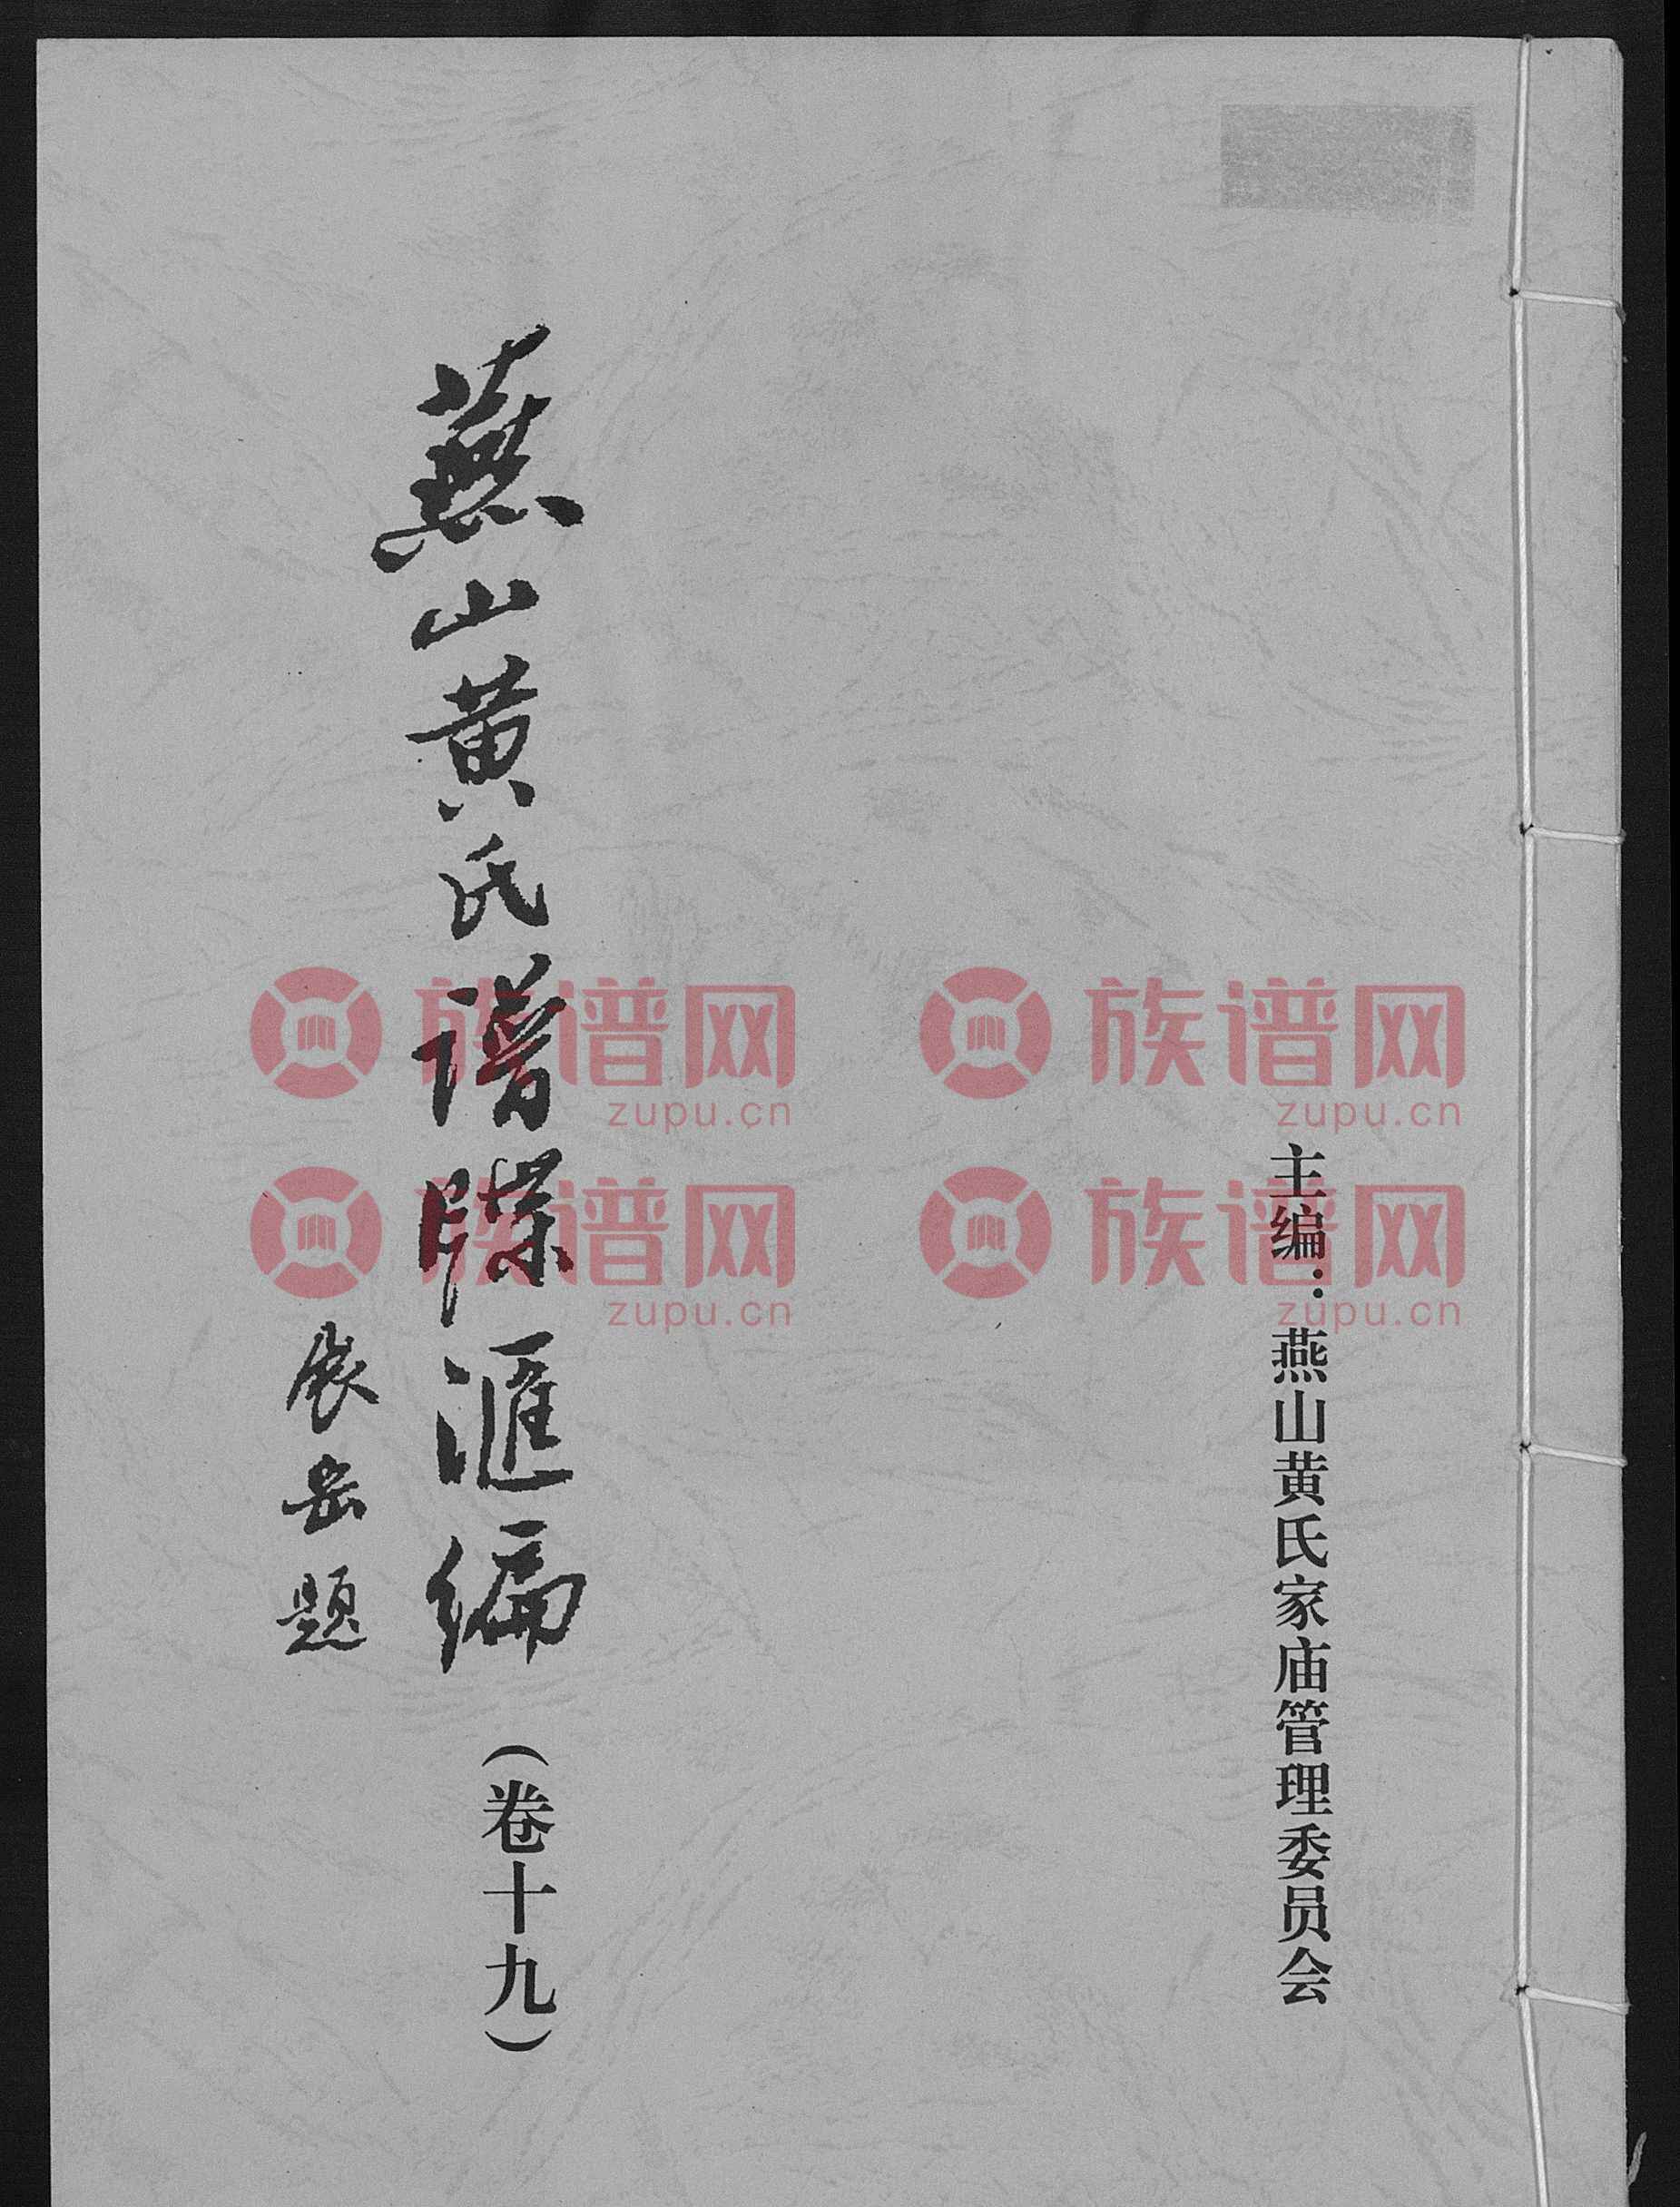 主编：燕山黄氏家庙管理委员会
燕山黄氏谱牒匯编（卷十九）
展岳题
族谱网
zupu.cn
族谱网
zupu.cn
族谱网
zupu.cn
族谱网
zupu.cn